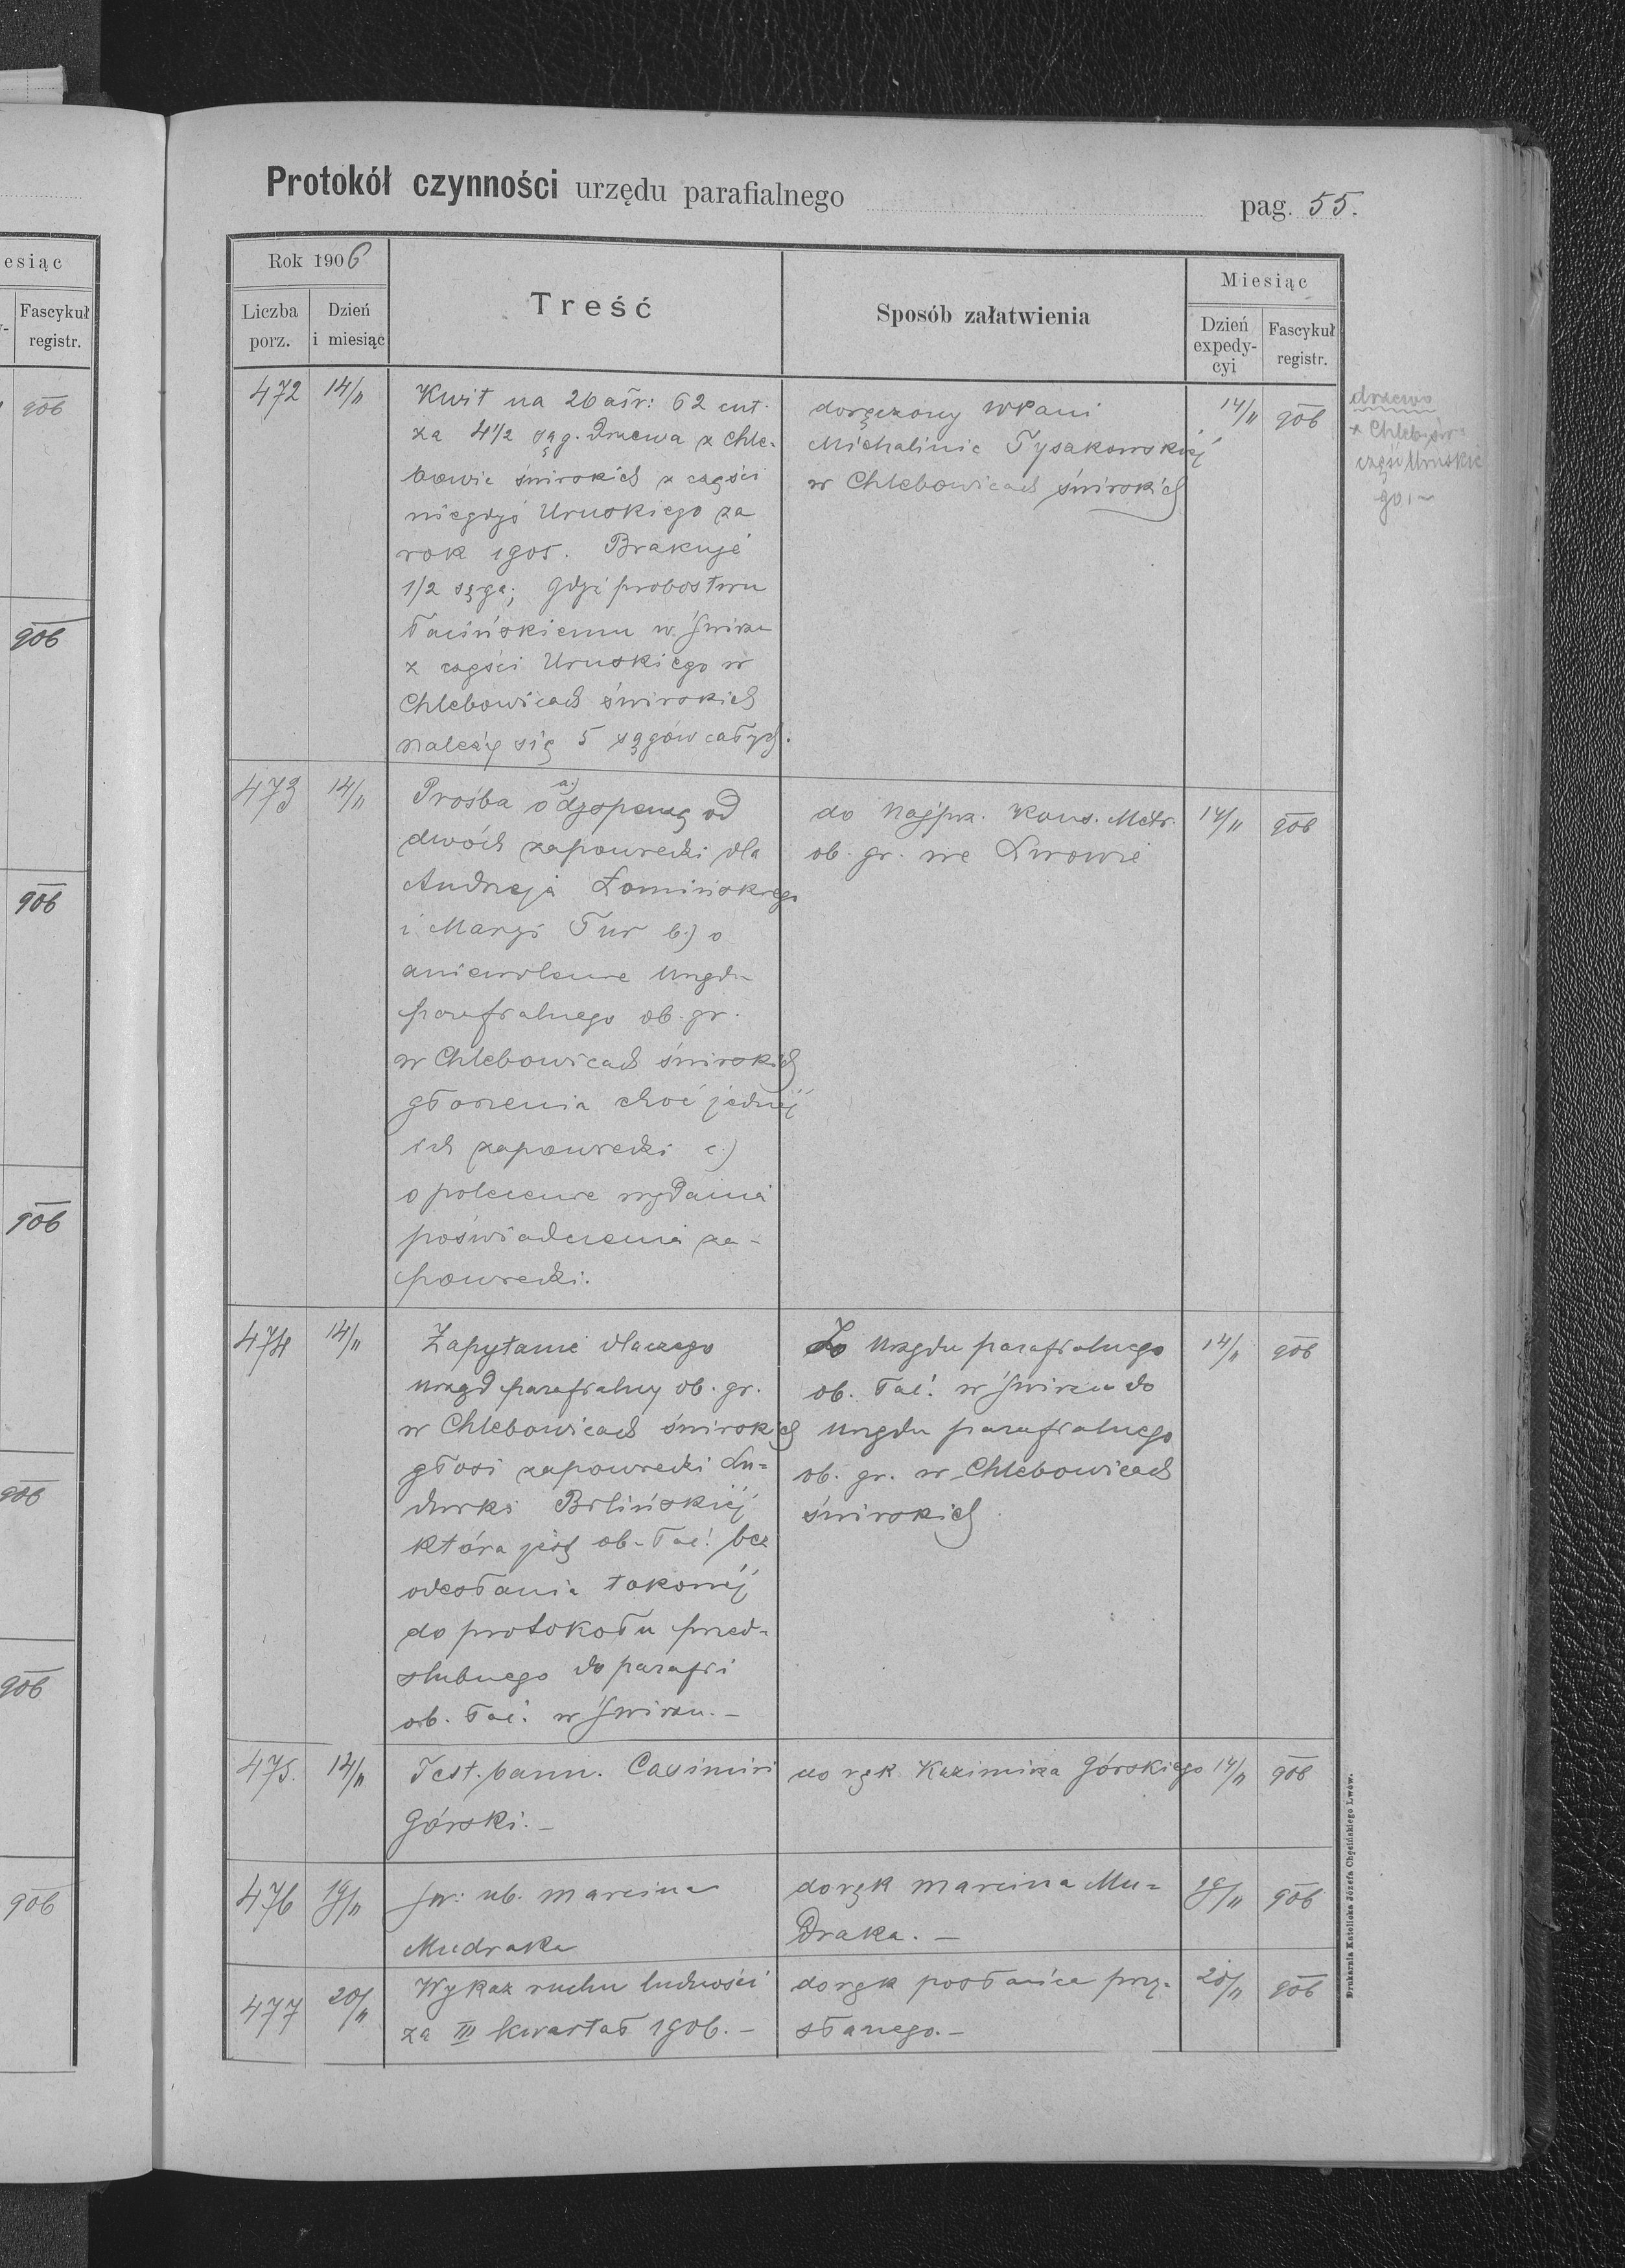 Protokół czynności urzędu parafialnego
pag. 55.
esiąc
Fascykuł
registr.
906
906
906
906
906
906
906
Rok 1906
Liczba porz.
Dzień i miesiąc
Treść
Sposób załatwienia
Miesiąc
Dzień expedy-cyi
Fascykuł registr.
472 14/11
Kwit na 26 aśr: 62 cnt.
za 4 1/2 sąg. drzewa z Chle-
bowic świrskich z części
niegdyś Uruskiego za
rok 1905. Brakuje
1/2 sęga; gdyż probostwu
łacińskiemu w Świrzu
z części Uruskiego w
Chlebowicach świrskich
należy się 5 sągów całych.
doręczony WPani
Michalinie Tysakowskiej
w Chlebowicach świrskich
14/11 906
drzewo
z Chlebow-
części Uruskie
go.~
473 14/11
Prośba o a) dyspensę od
dwóch zapowiedzi dla
Andrzeja Łomińskiego
i Maryi Tur b.) o
uniewolenie urzędu
parafialnego ob. gr.
w Chlebowicach świrskich
głoszenia choć jednej
ich zapowiedzi c.)
o polecenie wydania
poświadczenia za-
powiedzi.
do Najprz. Kons. Metr.
ob. gr. we Lwowie
14/11 906
474 14/11
Zapytanie dlaczego
urząd parafialny ob. gr.
w Chlebowicach świrskich
głosi zapowiedzi Lu-
dwiki Bilińskiej
która jest ob. łać. bez
odesłania takowej
do protokołu przed-
ślubnego do parafii
ob. łać. w Świrzu. –
Do Urzędu parafialnego
ob. łać. w Świrzu do
urzędu parafialnego
ob. gr. w Chlebowicach
świrskich
14/11 906
475. 14/11
Test. bann. Casimiri
Górski. –
do rąk Kazimirza Górskiego
14/11 906
476 19/11
Św: ub. Marcina
Mudraka
do rąk Marcina Mu-
draka. –
19/11 906
477 20/11
Wykaz ruchu ludności
za III kwartał 1906. –
do rąk posłańca przy-
słanego. –
20/11 906
Drukarnia Katolicka Józefa Chęcińskiego Lwów.